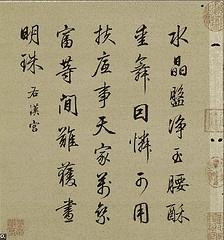 水晶盤净玉腰酥
舞因憐可用
扶底事天家萬乘
富等間難獲
明珠
右漢宮